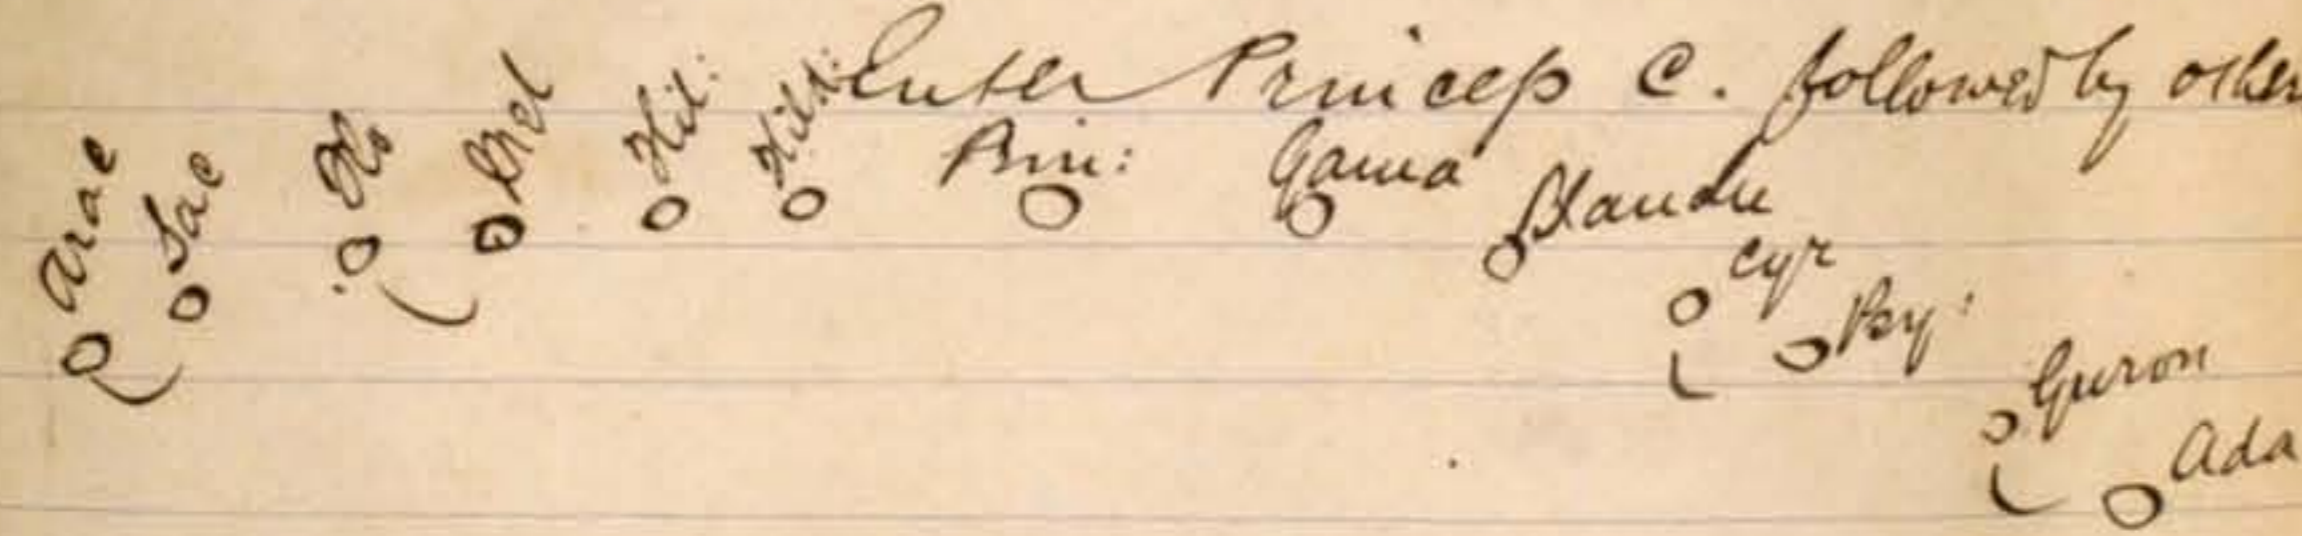 Enter Princess C. followed by other
Arac
Sac
Flo
Mel
Hil:
Hild:
Prin:
Gama
Blanche
Cyr
Psy:
Guron
Ada